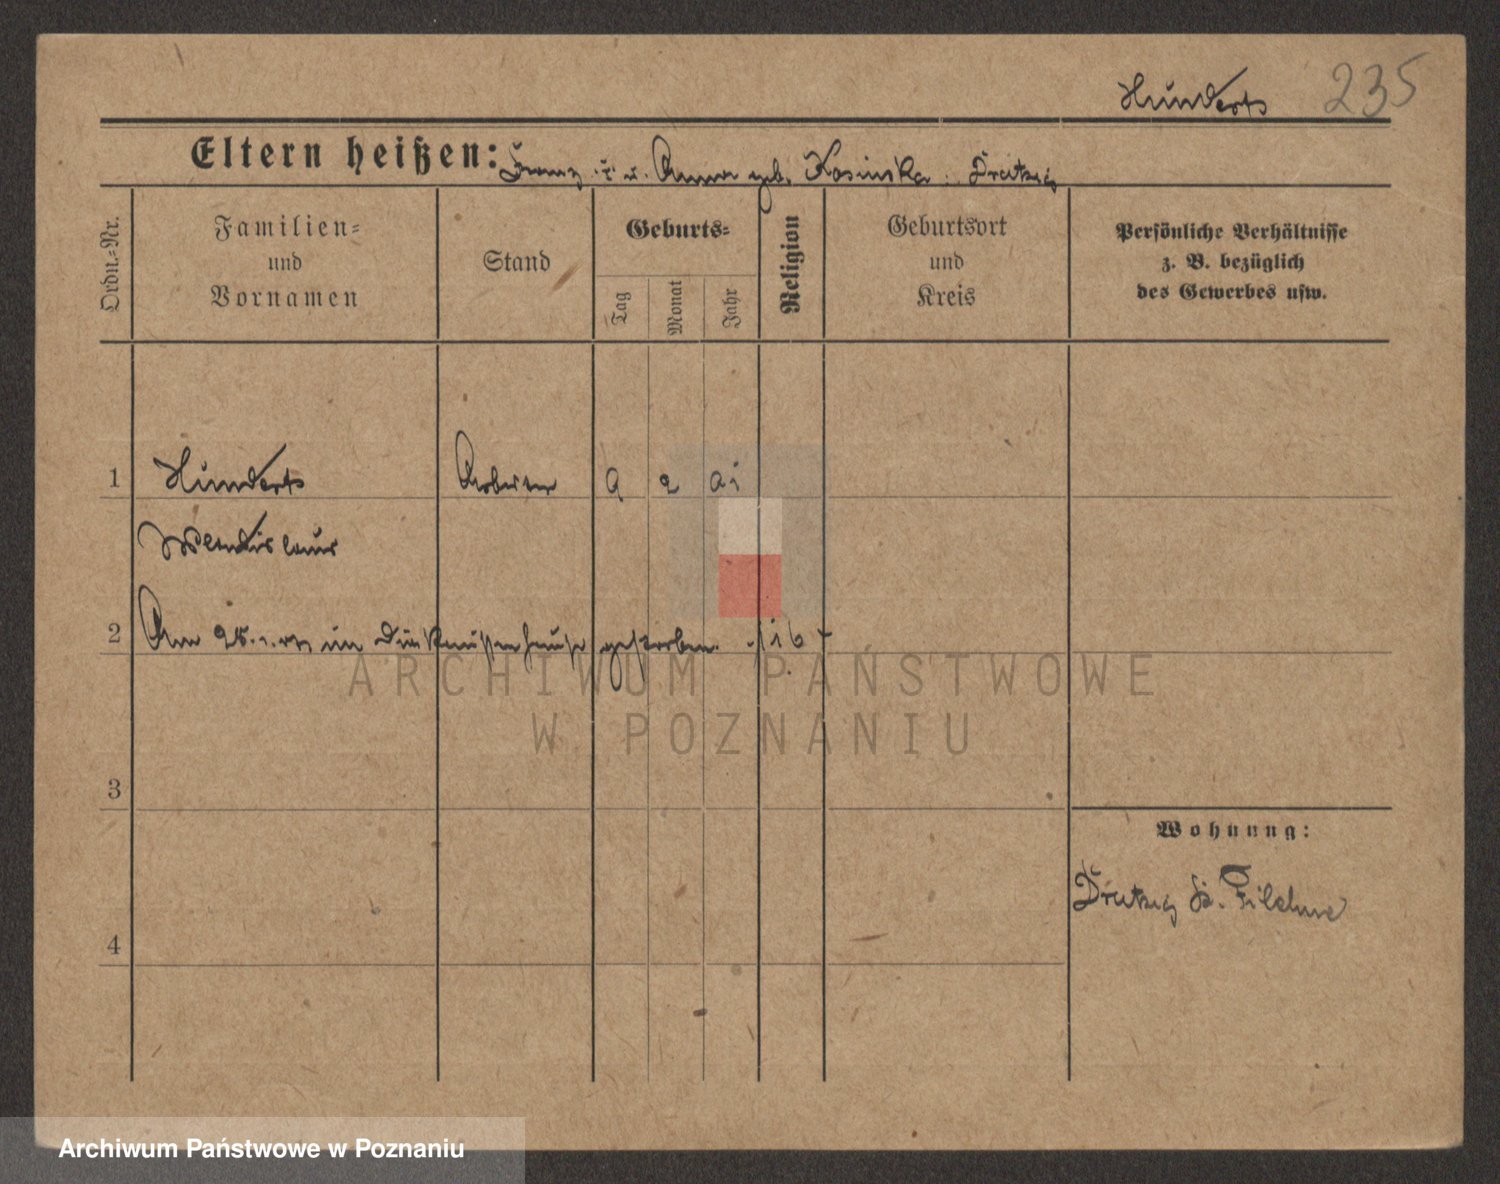 Hunderts 235
Eltern heißen: Franz u. Anna geb. Kosinska Dratzig
Ordn.-Nr.
Familien-
und
Vornamen
Stand
Geburts-
Tag
Monat
Jahr
Religion
Geburtsort
und
Kreis
Persönliche Verhältnisse
z. B. bezüglich
des Gewerbes usw.
1 Hunderts Arbeiter 9 2
Wladislaus
2 Am im gestorben.
3
Wohnung:
Dratzig Kr. Filehne
4
ARCHIWUM PAŃSTWOWE
W POZNANIU
Archiwum Państwowe w Poznaniu